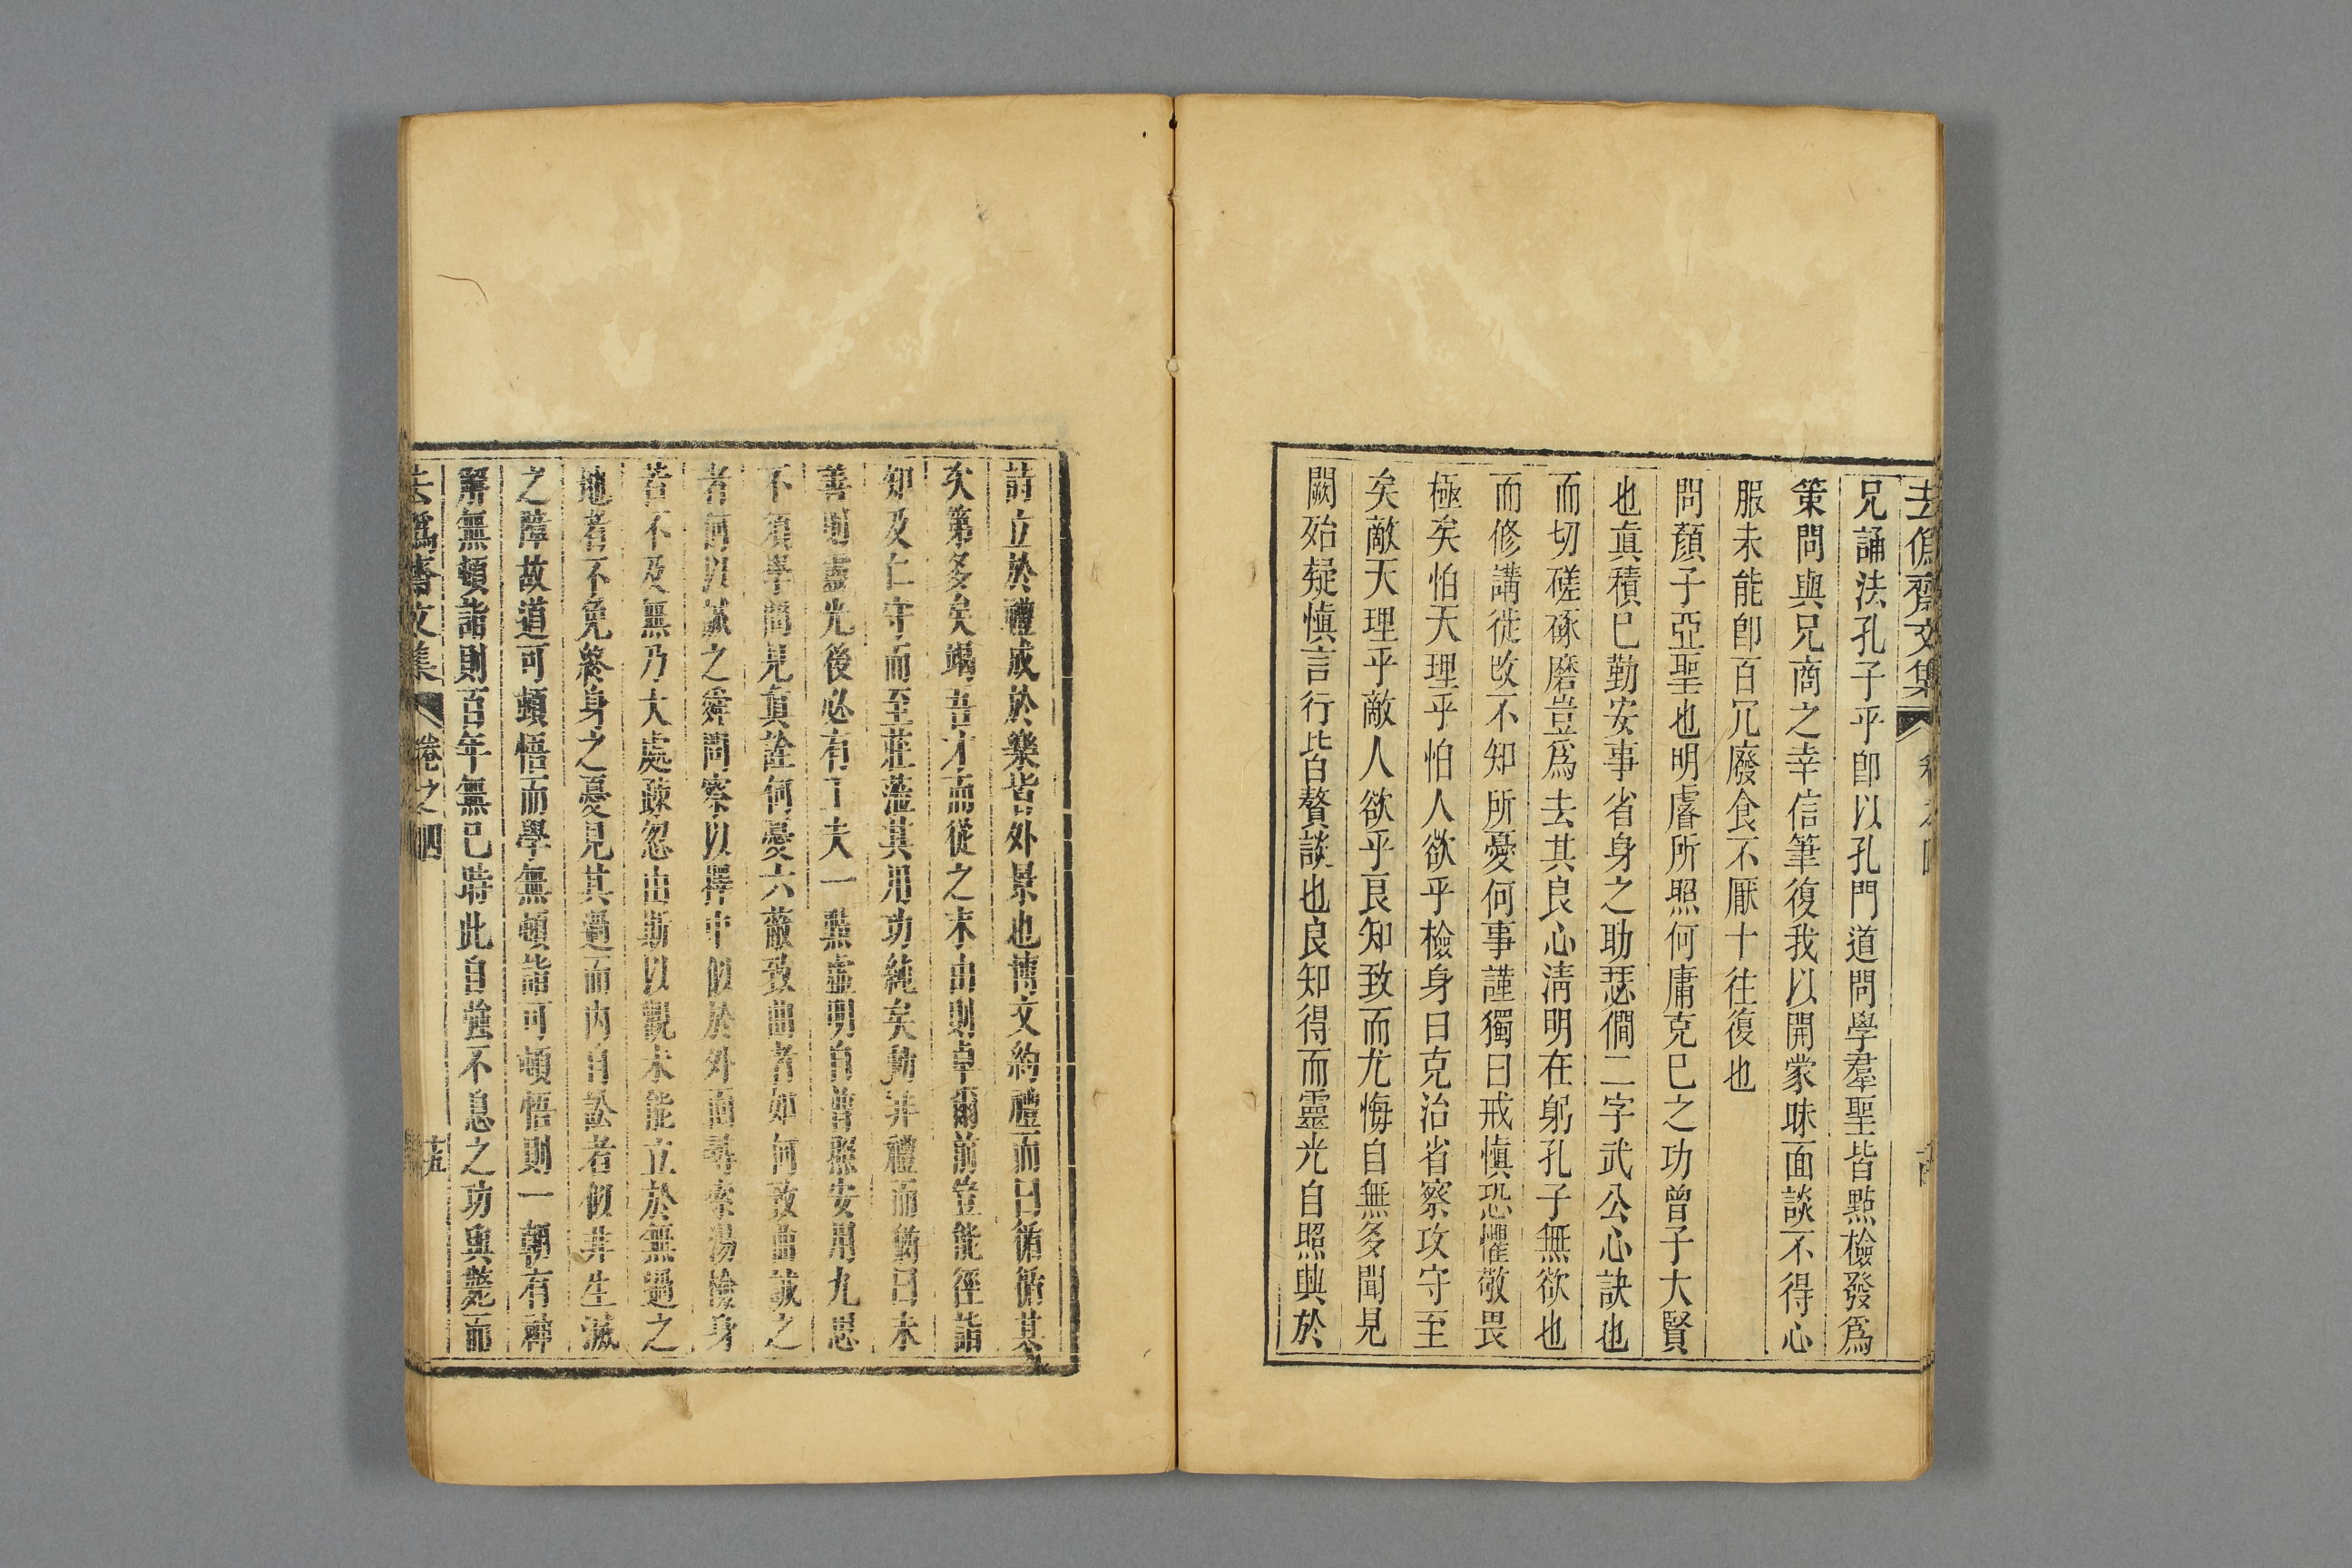 去偽齋文集 卷之四
兄誦法孔子乎卽以孔門道問學羣聖皆點檢發爲
策問與兄商之幸信筆復我以開蒙昧面談不得心
服未能卽百冗廢食不厭十往復也
問顏子亞聖也明睿所照何庸克巳之功曾子大賢
也眞積巳勤安事省身之助瑟僩二字武公心訣也
而切磋琢磨豈爲去其良心淸明在躬孔子無欲也
而修講徙改不知所憂何事謹獨曰戒愼恐懼敬畏
極矣怕天理乎怕人欲乎檢身曰克治省察攻守至
矣敵天理乎敵人欲乎良知致而尤悔自無多聞見
闕殆疑愼言行皆贅談也良知得而靈光自照興於
詩立於禮成於樂皆外景也博文約禮而曰循循其
矣第多矣竭吾才而從之末由則卓爾前豈能徑詣
知及仁守而至莊蒞其用功純矣動非禮而猶曰未
善則靈光後必有工夫一點虛明自普照安用九思
不須學問見眞詮何憂六蔽致曲者如何致曲誠之
者何以誠之舜問察以擇中似於外面尋索湯檢身
若不及無乃大處疎忽由斯以觀未能立於無過之
地者不免終身之憂見其過而內自訟者似非生滅
之障故道可頓悟而學無頓詣可頓悟則一朝有釋
解無頓詣則百年無已時此自強不息之功與斃而
去僞齋文集 卷之四 十五